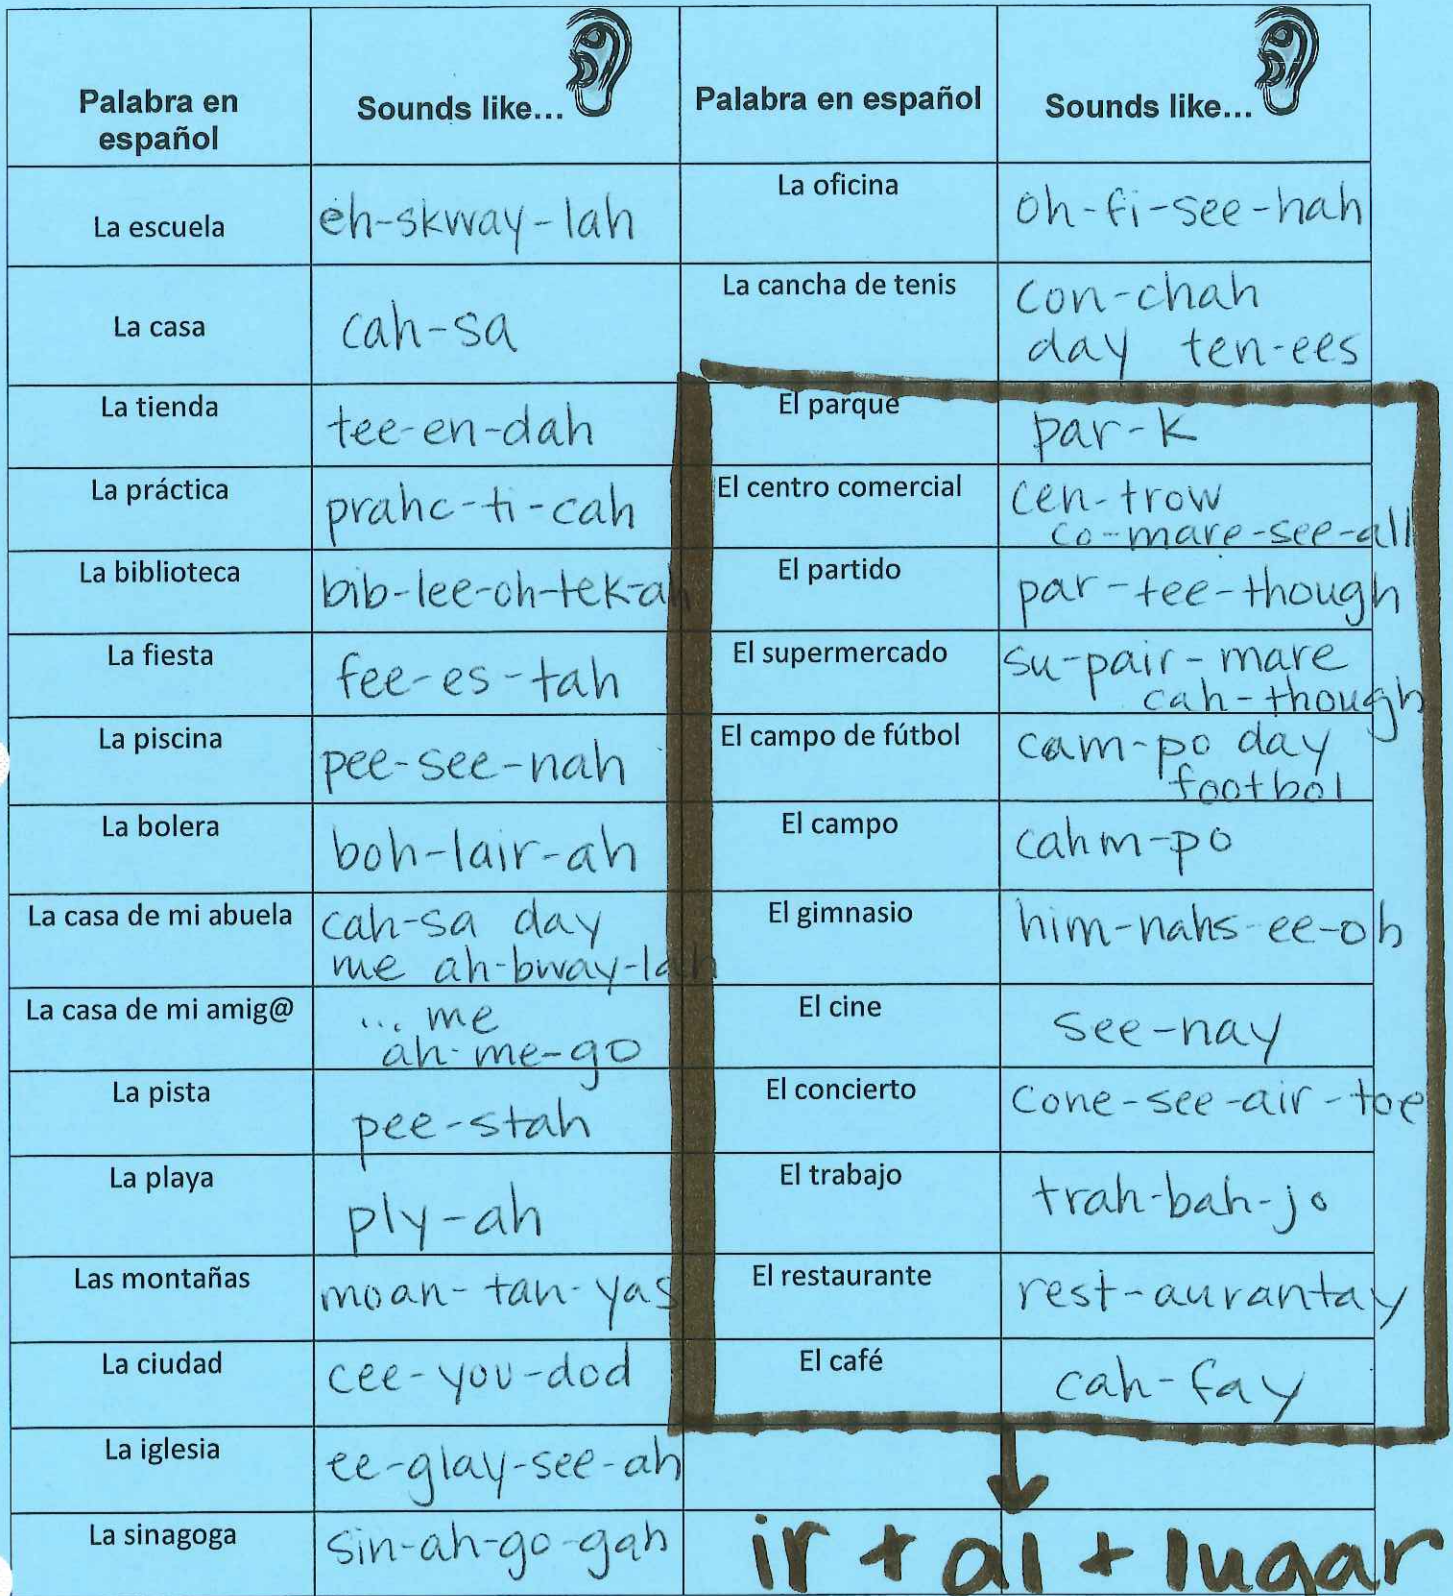 Palabra en
español
Sounds like...
Palabra en español
Sounds like...
La escuela
eh-skway-lah
La oficina
oh-fi-see-nah
La casa
cah-sa
La cancha de tenis
con-chah
day ten-ees
La tienda
tee-en-dah
El parque
par-k
La práctica
prahc-ti-cah
El centro comercial
cen-trow
co-mare-see-all
La biblioteca
bib-lee-oh-tek-ah
El partido
par-tee-though
La fiesta
fee-es-tah
El supermercado
su-pair-mare
cah-though
La piscina
pee-see-nah
El campo de fútbol
cam-po day
footbol
La bolera
boh-lair-ah
El campo
cahm-po
La casa de mi abuela
cah-sa day
me ah-bway-lah
El gimnasio
him-nahs-ee-oh
La casa de mi amig@
... me
ah-me-go
El cine
see-nay
La pista
pee-stah
El concierto
cone-see-air-toe
La playa
ply-ah
El trabajo
trah-bah-jo
Las montañas
moan-tan-yas
El restaurante
rest-aurantay
La ciudad
cee-you-dod
El café
cah-fay
La iglesia
ee-glay-see-ah
La sinagoga
sin-ah-go-gah
ir + al + lugar